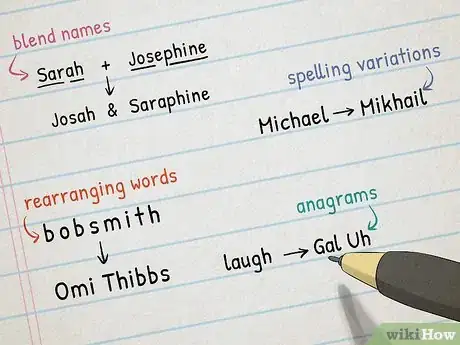 blend names
Sarah + Josephine
Josah & Saraphine
spelling variations
Michael → Mikhail
rearranging words
bobsmith
Omi Thibbs
anagrams
laugh → Gal Uh
wikiHow